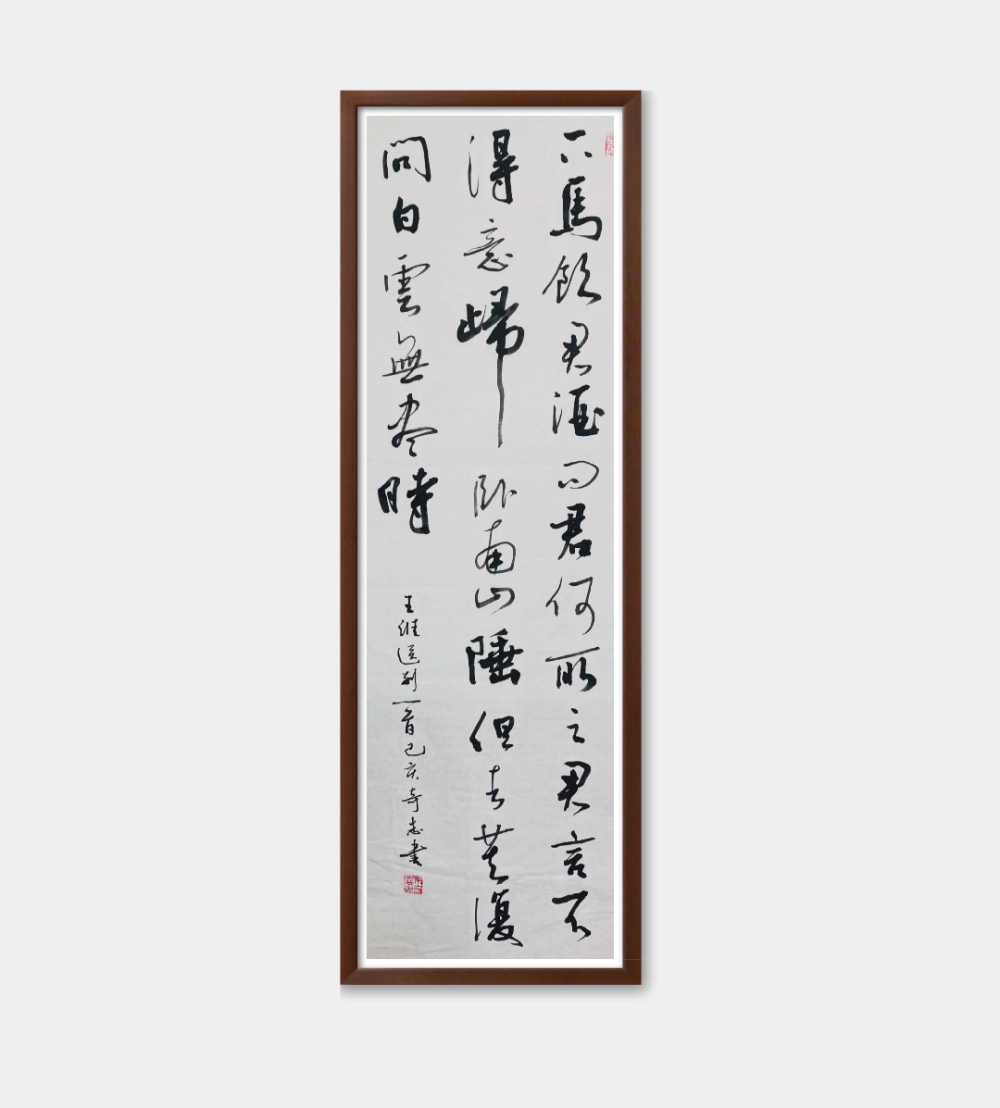 下馬飲君酒問君何所之君言不
得意歸卧南山陲但去莫復
問白雲無尽時
王維送别一首己亥奇志書